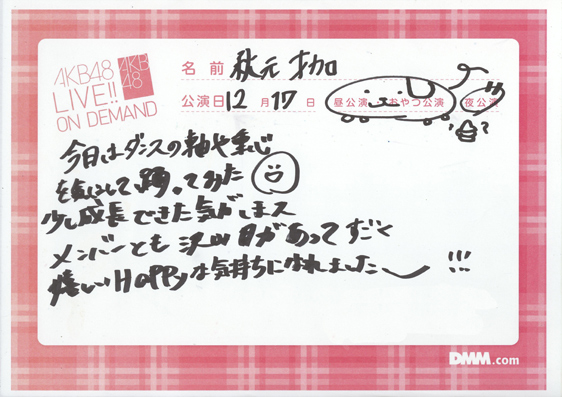 AKB48
LIVE!!
ON DEMAND
AKB
48
名 前 秋元 才加
公演日 12 月 17 日 昼公演 おやつ公演 夜公演
今日はダンスの軸や重心
を気にして踊ってみた
少し成長できた気がしまス
メンバーとも沢山目があってすごく
嬉しいHappyな気持ちになれました〜!!!
DMM.com